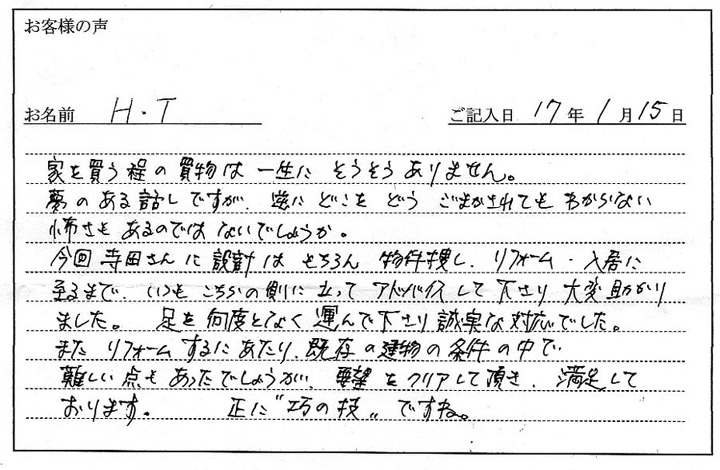 お客様の声
お名前 H・T ご記入日 17年1月15日
家を買う程の買物は一生に そうそう ありません。
夢のある話しですが、逆に どこを どう ごまかされても わからない
怖さも あるのでは ないでしょうか。
今回 寺田さんに 設計は もちろん 物件捜し、リフォーム・入居に
至るまで、いつも こちらの側に 立って アドバイス して 下さり 大変 助かり
ました。 足を 何度となく 運んで下さり 誠実な 対応でした。
また リフォーム するにあたり、既存の建物の条件の中で
難しい点も あったでしょうが、要望を クリアして 頂き、満足して
おります。 正に"巧の技"ですね。